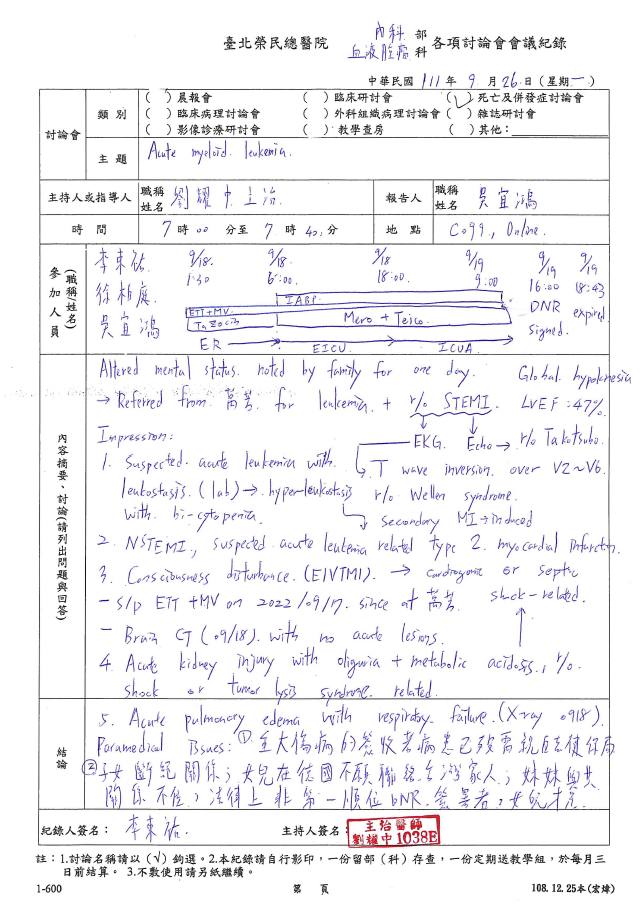 臺北榮民總醫院 內科部 血液腫瘤科 各項討論會會議紀錄
中華民國 111 年 9 月 26 日 (星期一)
討論會
類別
( ) 晨報會 ( ) 臨床研討會 (✓) 死亡及併發症討論會
( ) 臨床病理討論會 ( ) 外科組織病理討論會 ( ) 雜誌研討會
( ) 影像診療研討會 ( ) 教學查房 ( ) 其他:
主題 Acute myeloid leukemia.
主持人或指導人 職稱姓名 劉耀中 主治 報告人 職稱姓名 吳宜鴻
時間 7 時 00 分至 7 時 40 分 地點 C099, Online.
參加人員(職稱/姓名)
李東祐 9/18. 9/18. 9/18 9/19 9/19 9/19
1:30 6:00. 18:00. 9:00 16:00 18:43
徐柏庭 IABP DNR expired
吳宜鴻 ETT+MV signed.
Tazocin Mero + Teico.
ER EICU ICUA
內容摘要、討論(請列出問題與回答)
Altered mental status noted by family for one day. Global hypokinesia
→ Referred from 萬芳 for leukemia + r/o STEMI. LVEF:47%.
Impression: EKG. Echo → r/o Takotsubo.
1. Suspected acute leukemia with T wave inversion over V2~V6.
leukostasis. (lab) → hyperleukostasis r/o Wellen syndrome.
with bi-cytopenia. secondary MI → induced
2. NSTEMI, suspected acute leukemia related type 2 myocardial infarction.
3. Consciousness disturbance. (E1VTM1) → cardiogenic or septic
- s/p ETT +MV on 2022/09/17. since at 萬芳 shock-related.
- Brain CT (09/18). with no acute lesions.
4. Acute kidney injury with oliguria + metabolic acidosis, r/o.
shock or tumor lysis syndrome related.
結論
5. Acute pulmonary edema with respiratory failure. (X-ray 0918).
Paramedical Issues: ① 重大傷病的簽收 病患已
② 子女斷絕關係; 女兒在德國不願聯絡台灣家人; 妹妹與其
關係不佳, 法律上非第一順位DNR簽署者, 女兒才是
紀錄人簽名: 李東祐 主持人簽名: 主治醫師
劉耀中1038E
註:1.討論名稱請以(√)鉤選。2.本紀錄請自行影印,一份留部(科)存查,一份定期送教學組,於每月三
日前結算。3.不敷使用請另紙繼續。
1-600 第 頁 108.12.25本(宏煒)